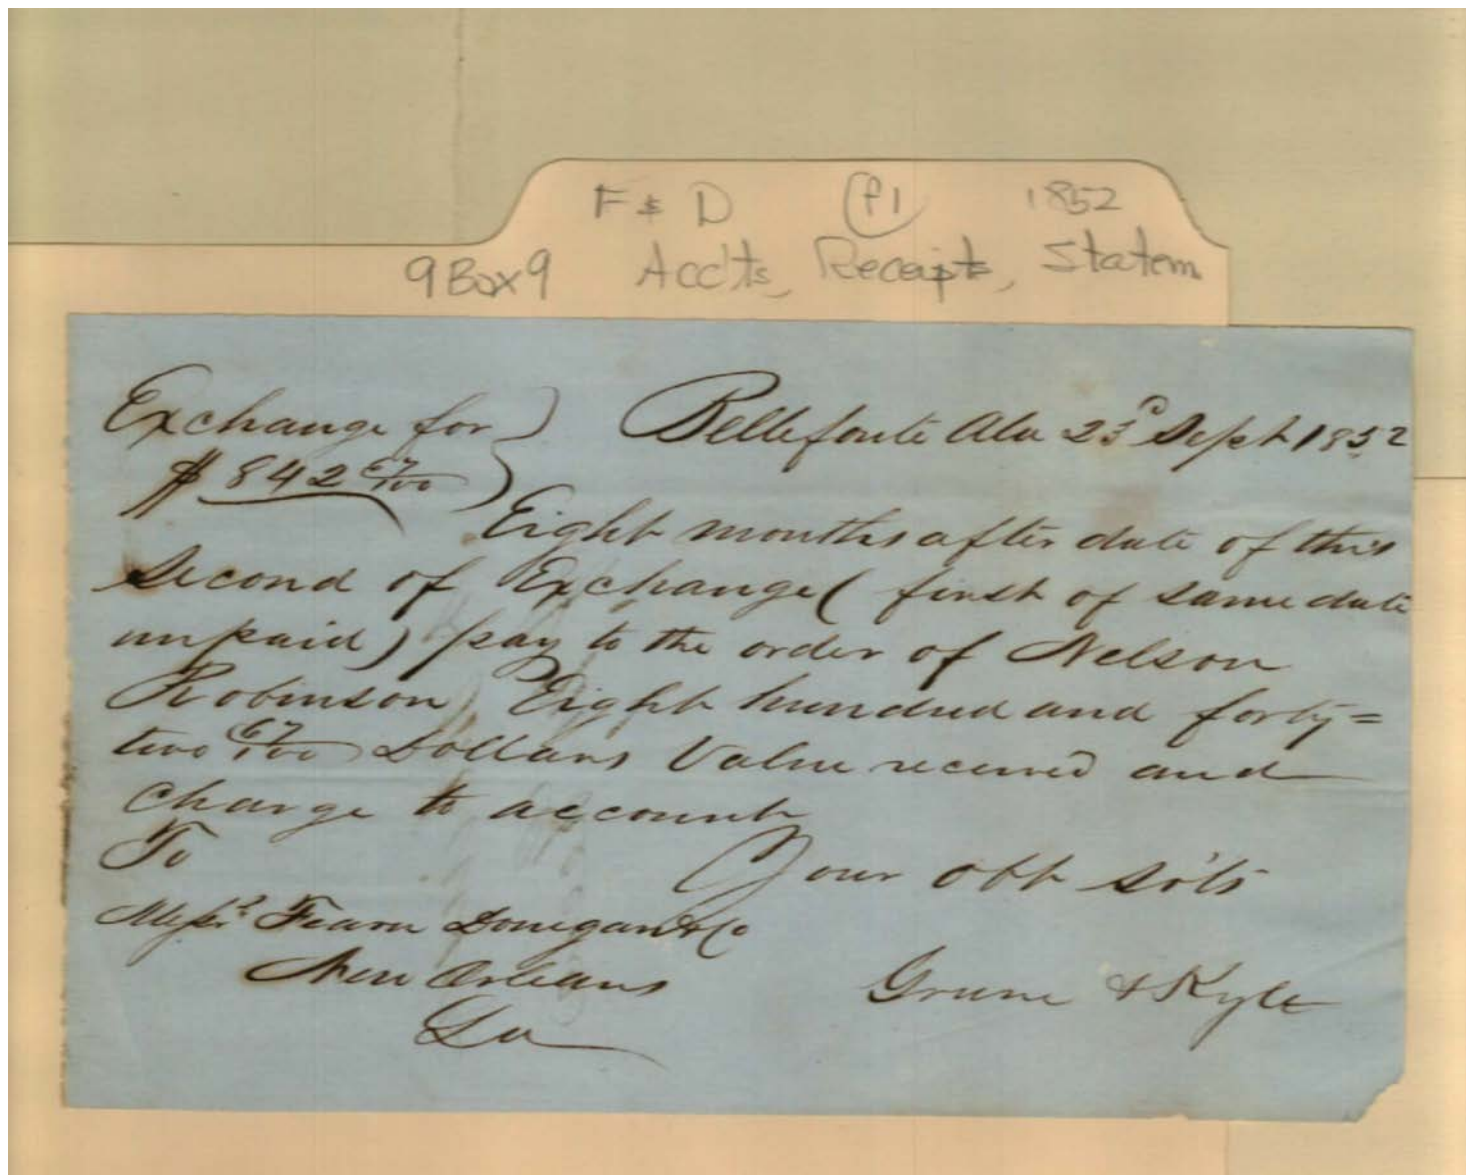 F & D (P1) 1852
9 Box 9 Acc'ts, Receipts, Statem
Exchange for } Bellefonte Ala 23d Sept 1852
$842 67/100
Eight months after date of this
Second of Exchange (first of same date
unpaid) pay to the order of Nelson
Robinson Eight hundred and forty=
two 67/100 Dollars Value received and
charge to account
To Your obt svts
Messrs Fearn Donegan & Co
New Orleans & Kyle
La